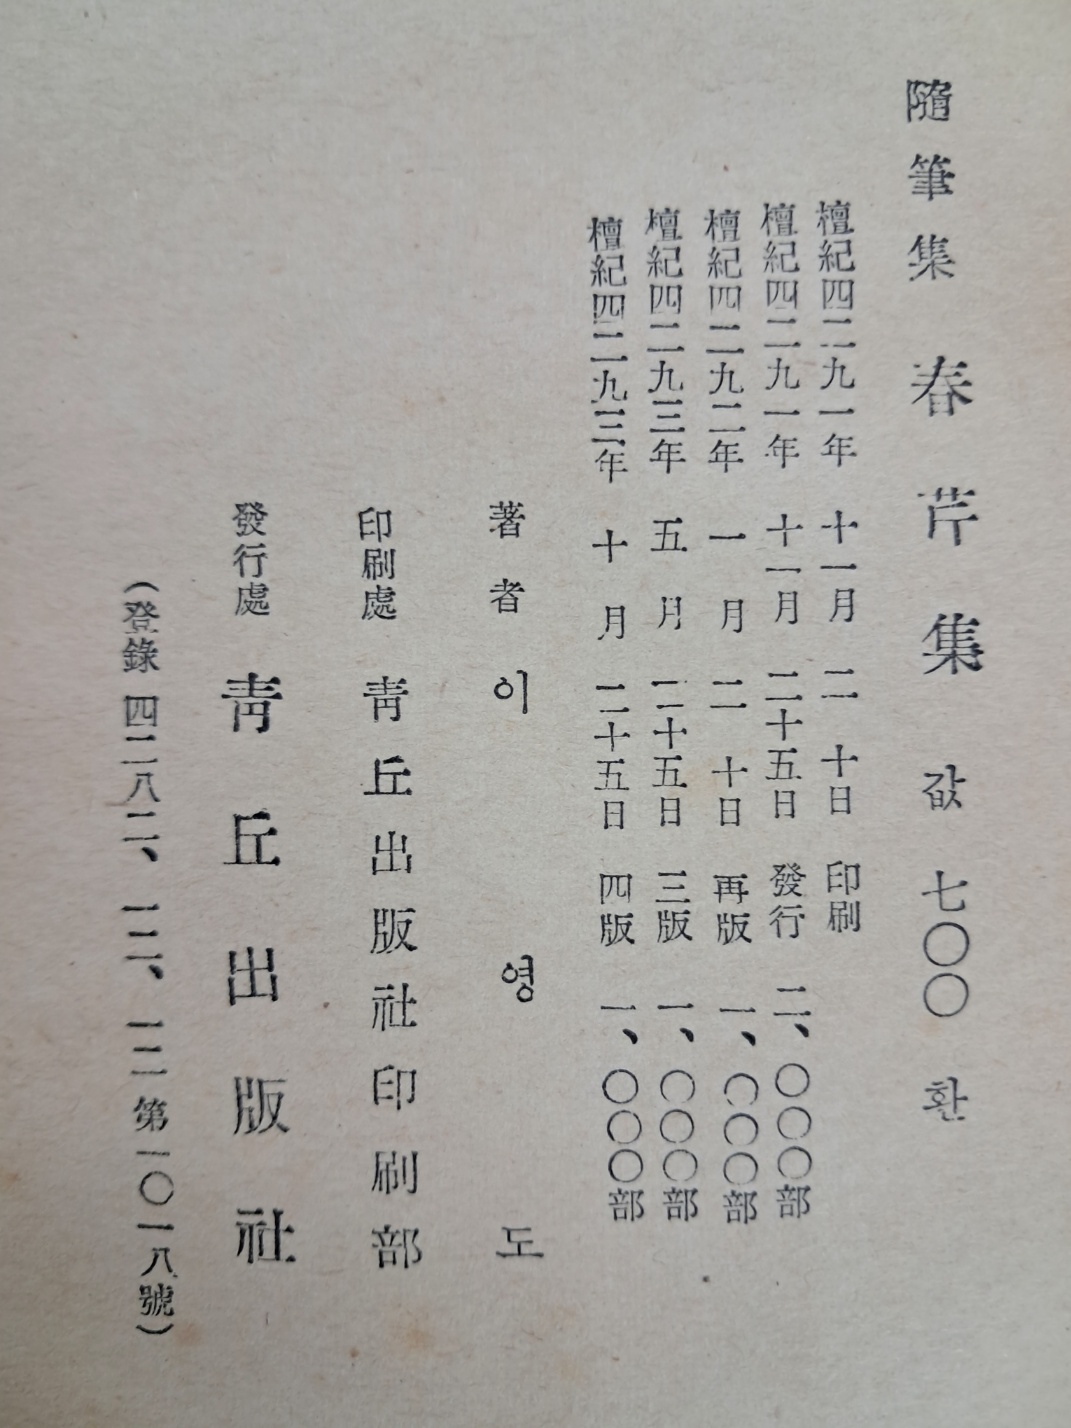 隨筆集 春芹集 값 七〇〇 환
檀紀四二九一年 十一月 二十日 印刷
檀紀四二九一年 十一月 二十五日 發行 二、〇〇〇部
檀紀四二九二年 一月 二十日 再版 一、〇〇〇部
檀紀四二九三年 五月 二十五日 三版 一、〇〇〇部
檀紀四二九三年 十月 二十五日 四版 一、〇〇〇部
著者 이영도
印刷處 靑丘出版社印刷部
發行處 靑丘出版社
(登錄 四二八二、一二、一二 第一〇一八號)